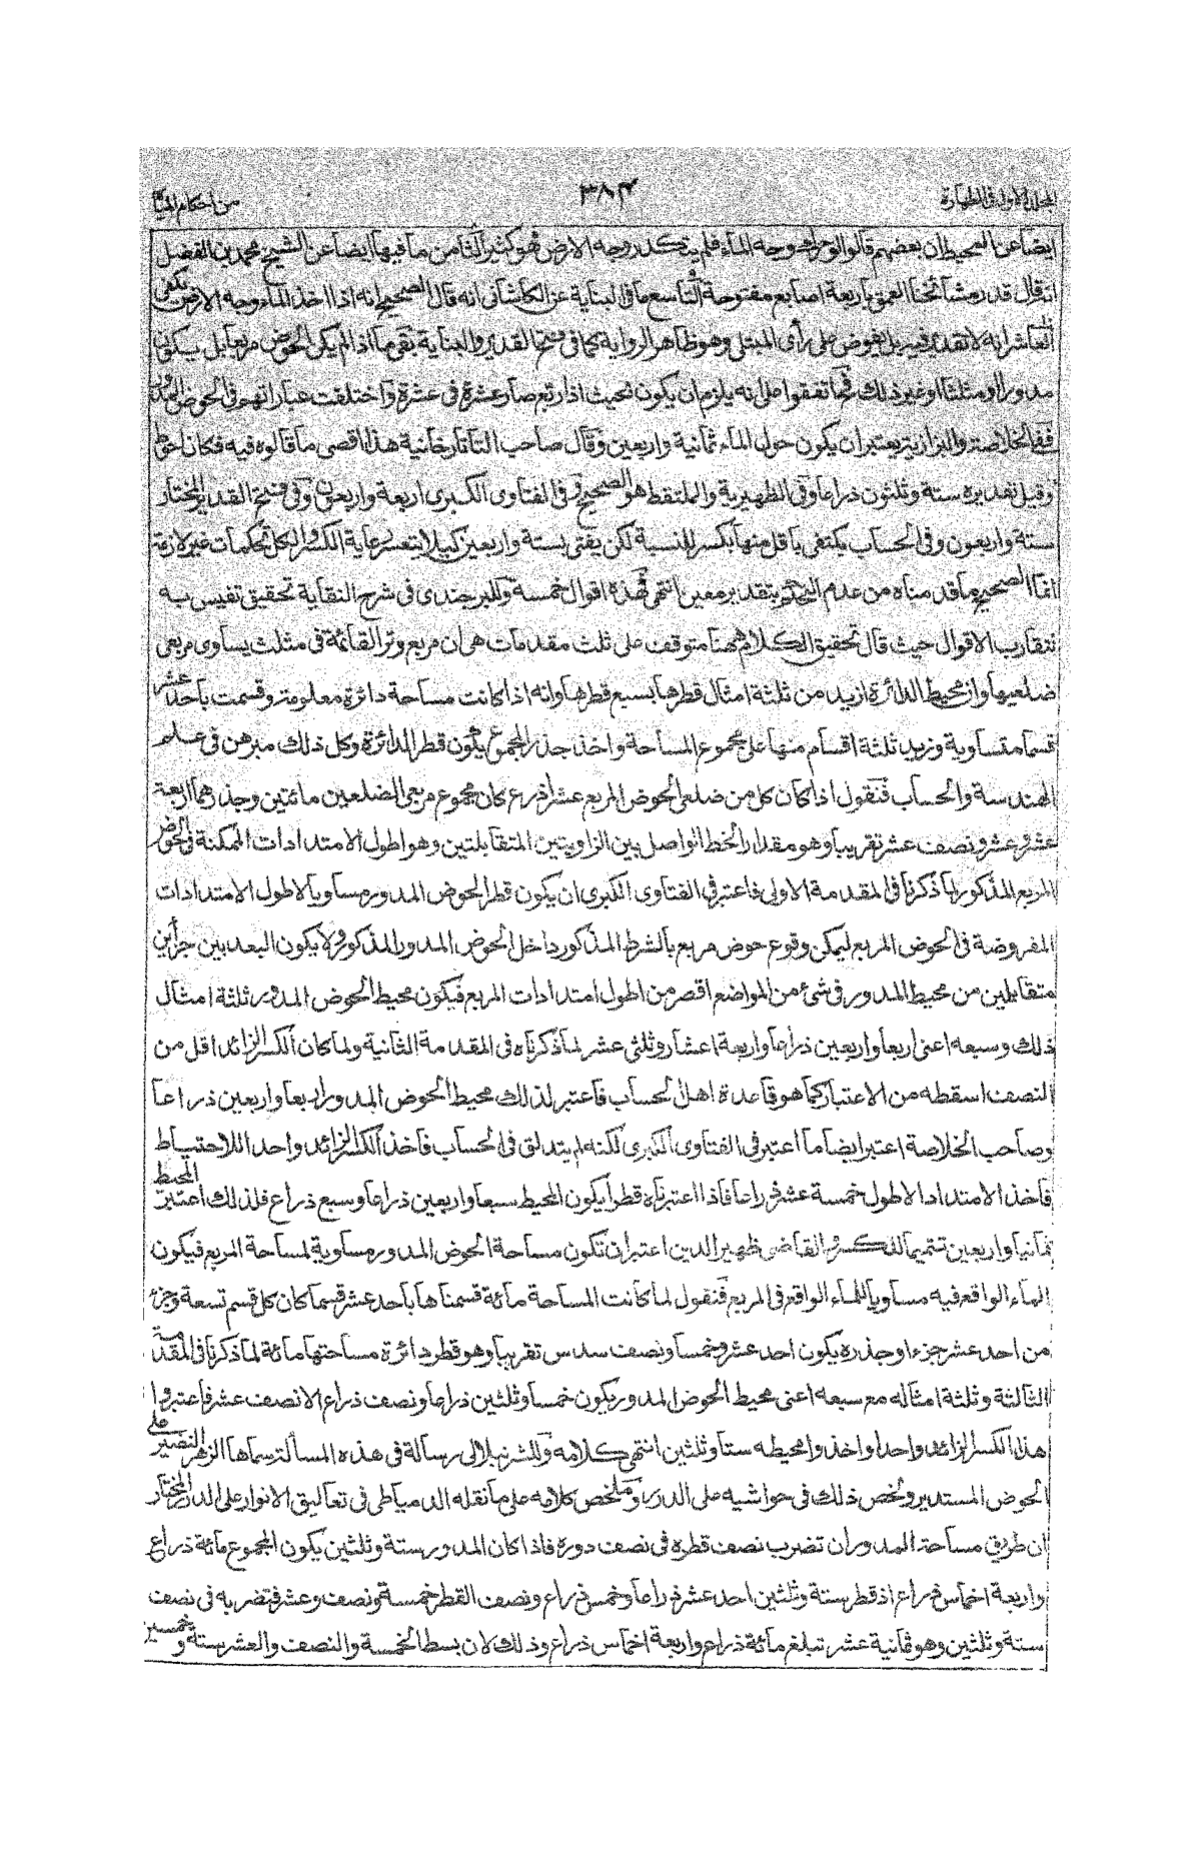 المجلد الاول فى الطهارة
٣٨٤
من احكام المياه
ايضا عن المحيط ان بعضهم قالوا لو وجه الماء فلم يتكدر وجه الارض فهو كثير الثامن ما فيها ايضا عن الشيخ محمد بن الفضل
انه قال قدر مشائخنا العمق باربعة اصابع مفتوحة التاسع ما فى البناية عن الكاشانى انه قال الصحيح انه اذا اخذ الماء وجه الارض يكفى
العاشر انه لا تقدير فيه بل يفوض على رأى المبتلى وهو ظاهر الرواية كما فى فتح القدير والبناية بقى ما اذا لم يكن الحوض مربعا بل يكون
مدورا او مثلثا او غير ذلك فما اتفقوا على انه يلزم ان يكون بحيث اذا ربع صار عشرة فى عشرة واختلفت عباراتهم فى الحوض المدور
ففى الخلاصة والبزازية يعتبر ان يكون حول الماء ثمانية واربعين وقال صاحب التاتارخانية هذا اقصى ما قالوه فيه فكان احوط
وقيل تقديره ستة وثلثون ذراعا وفى الظهيرية والملتقط هو الصحيح وفى الفتاوى الكبرى اربعة واربعون وفى فتح القدير المختار
ستة واربعون وفى الحساب يكتفى باقل منها بكسر للنسبة لكن يفتى بستة واربعين كيلا يتعسر رعاية الكسر والكل تحكمات غير لازمة
انما الصحيح ما قدمناه من عدم التحكم بتقدير معين انتهى فهذه اقوال خمسة وللبرجندى فى شرح النقاية تحقيق نفيس به
تتقارب الاقوال حيث قال تحقيق الكلام ههنا متوقف على ثلث مقدمات هى ان مربع وتر القائمة فى مثلث يساوى مربعى
ضلعيها وان محيط الدائرة ازيد من ثلثة امثال قطرها بسبع قطرها وانه اذا كانت مساحة دائرة معلومة وقسمت باحد عشر
قسما متساوية وزيد ثلثة اقسام منها على مجموع المساحة واخذ جذر المجموع يكون قطر الدائرة وكل ذلك مبرهن فى علم
الهندسة والحساب فنقول اذا كان كل من ضلعى الحوض المربع عشرا ذرع كان مجموع مربعى الضلعين مائتين وجذرهما اربعة
عشر وعشر ونصف عشر تقريبا وهو مقدار الخط الواصل بين الزاويتين المتقابلتين وهو اطول الامتدادات الممكنة فى الحوض
المربع المذكور لما ذكرنا فى المقدمة الاولى فاعتبر فى الفتاوى الكبرى ان يكون قطر الحوض المدور مساويا لاطول الامتدادات
المفروضة فى الحوض المربع ليمكن وقوع حوض مربع بالشرط المذكور داخل الحوض المدور المذكور ولا يكون البعد بين جزأين
متقابلين من محيط المدور فى شئ من المواضع اقصر من اطول امتدادات المربع فيكون محيط الحوض المدور ثلثة امثال
ذلك وسبعه اعنى اربعا واربعين ذراعا واربعة اعشار وثلثى عشر لما ذكرناه فى المقدمة الثانية ولما كان الكسر الزائد اقل من
النصف اسقطه من الاعتبار كما هو قاعدة اهل الحساب فاعتبر لذلك محيط الحوض المدور اربعا واربعين ذراعا
وصاحب الخلاصة اعتبر ايضا ما اعتبر فى الفتاوى الكبرى لكنه لم يتدلق فى الحساب فاخذ الكسر الزائد واحدا للاحتياط
فاخذ الامتداد الاطول خمسة عشر ذراعا فاذا اعتبرناه قطرا يكون المحيط سبعا واربعين ذراعا وسبع ذراع فلذلك اعتبر المحيط
ثمانيا واربعين تتميما للكسر والقاضى ظهير الدين اعتبر ان تكون مساحة الحوض المدور مساوية لمساحة المربع فيكون
الماء الواقع فيه مساويا للماء الواقع فى المربع فنقول لما كانت المساحة مائة قسمناها باحد عشر قسما كان كل قسم تسعة وجزء
من احد عشر جزءا وجذره يكون احد عشر وخمسا ونصف سدس تقريبا وهو قطر دائرة مساحتها مائة لما ذكرنا فى المقدمة
الثالثة وثلثة امثاله مع سبعه اعنى محيط الحوض المدور يكون خمسا وثلثين ذراعا ونصف ذراع الا نصف عشر فاعتبروا
هذا الكسر الزائد واحدا واخذوا محيطه ستا وثلثين انتهى كلامه وللشرنبلالى رسالة فى هذه المسألة سماها الزهر النضير على
الحوض المستدير ولخص ذلك فى حواشيه على الدرر وملخص كلامه على ما نقله الدمياطى فى تعاليق الانوار على الدر المختار
ان طريق مساحة المدور ان تضرب نصف قطره فى نصف دوره فاذا كان المدور ستة وثلثين يكون المجموع مائة ذراع
واربعة اخماس ذراع اذ قطر ستة وثلثين احد عشر ذراعا وخمس ذراع ونصف القطر خمسة ونصف وعشر فتضربه فى نصف
ستة وثلثين وهو ثمانية عشر تبلغ مائة ذراع واربعة اخماس ذراع وذلك لان بسط الخمسة والنصف والعشر ستة وخمسين